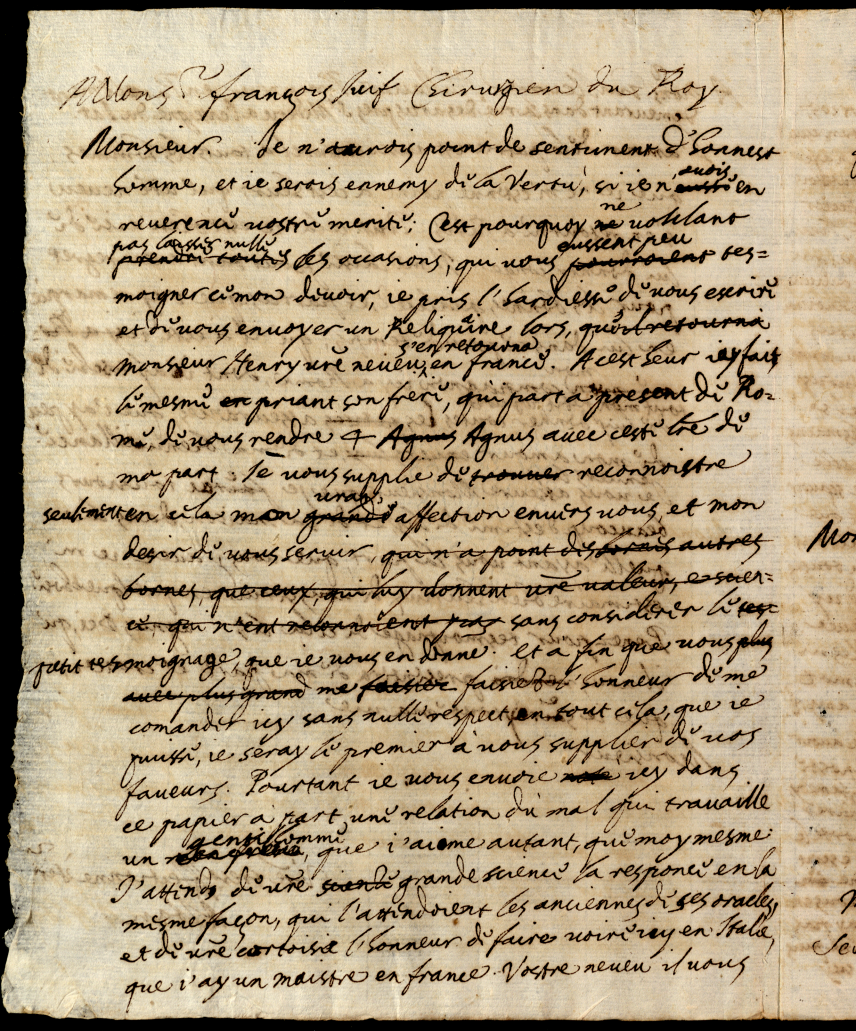 A Mons.r françois Juif Chirurgien du Roy.
Monsieur. Je n'aurois point de sentiment d'honnest
homme, et ie serois ennemy de la Vertù, si ie n'avois en
reverence vostre merite; C'est pourquoy ne voulant
pas laisser nulle
prendre toutes les occasions, qui vous pourroient tes=
eussent peu
moigner ce mon devoir, ie pris l'hardiesse de vous escrire
et de vous envoyer un Reliquaire lors, qu'il retourna
s'en retourna
monsieur Henry vr̃e neveu, en france. A cest heur icy fais
le mesme en priant son frere, qui part a present de Ro-
me, de vous rendre 4 Agnus Agnus avec ceste lr̃e de
ma part. Je vous supplie de trouver reconnoistre
vraye
seulement en cela mon grande affection envers vous, et mon
desir de vous servir, qui n'a point des autres
bornes, que ceux, qui luy donnent vr̃e valeur, e scien-
ce qui n'ent reconnoient pas sans considerer le tes-
petit tesmoignage, que ie vous en donne. et a fin que vous plus
avec plus grand me faisiez l'honneur de me
comander icy sans nulle respect, en tout cela, que ie
puisse, ie seray le premier à vous supplier de vos
faveurs. Pourtant ie vous envoie icy dans
ce papier a part une relation du mal qui travaille
gentilhomme
un, que i'aieme autant, que moy mesme.
J'attends de vr̃e grande science la responce en la
mesme façon, qui l'attendoient les anciennes de ses oracles,
et de vr̃e cortoisie l'honneur de faire voire icy en Italie,
que i'ay un maistre en france. Vostre neveu il vous